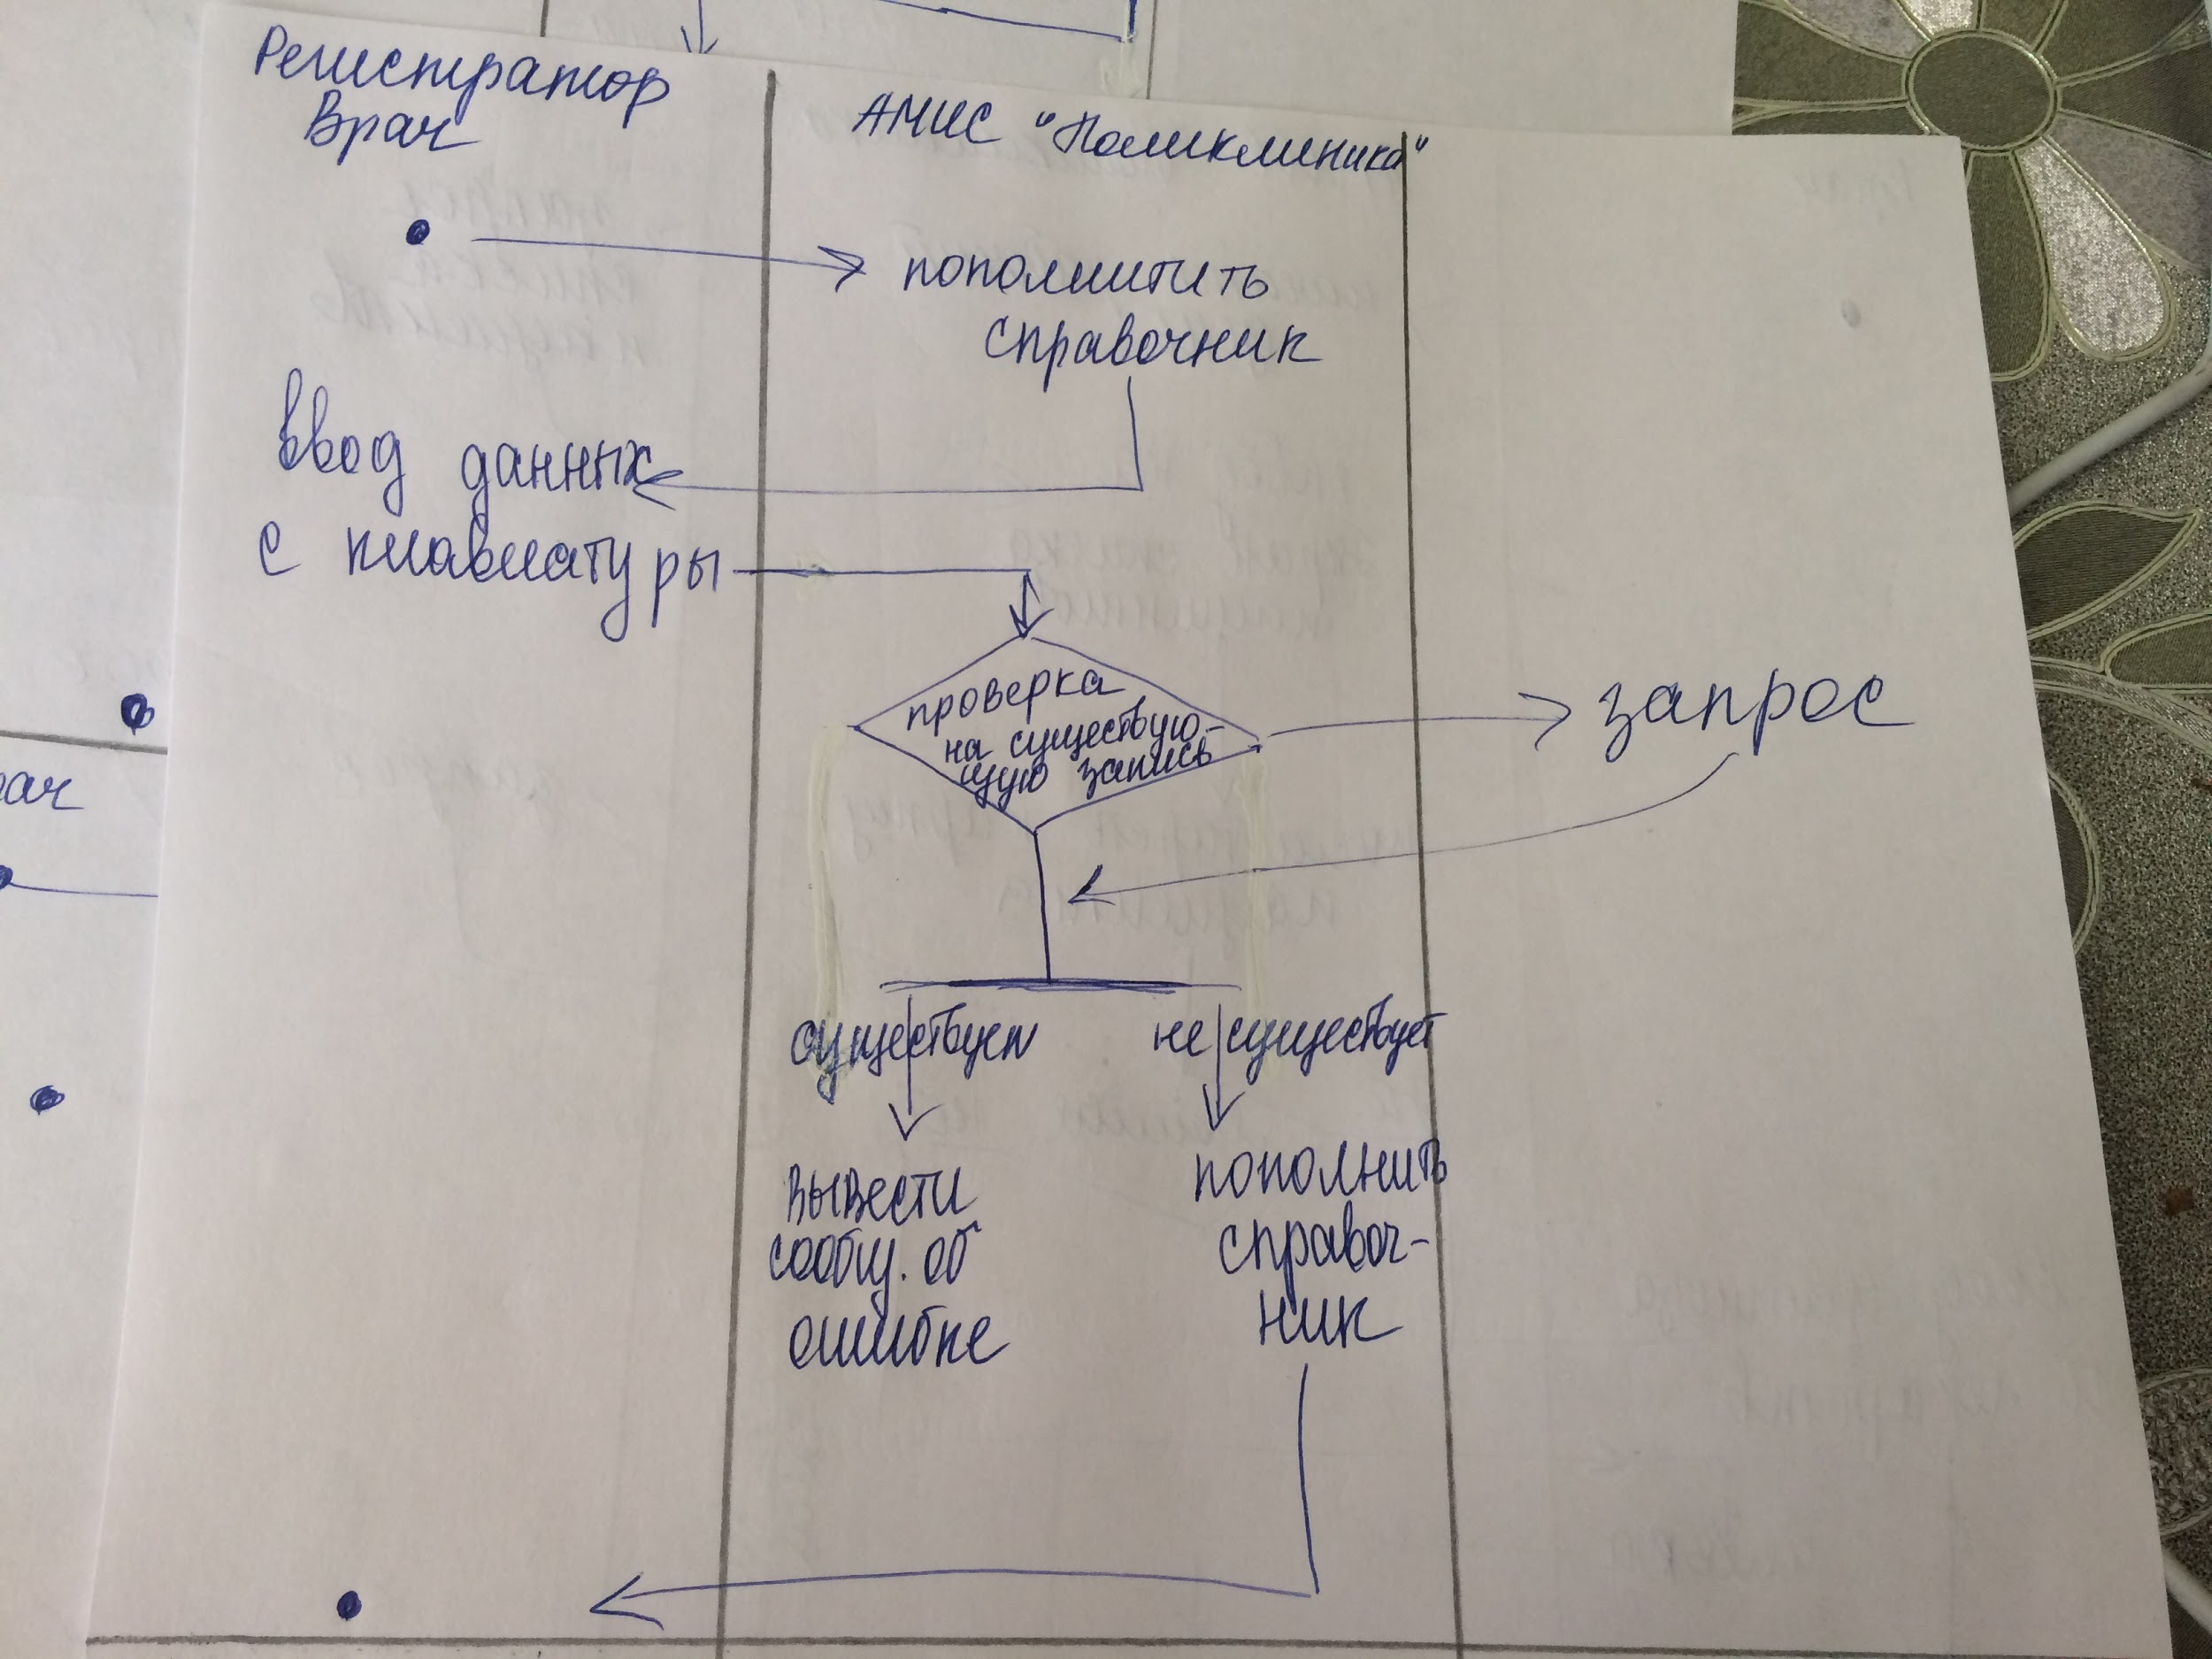 Регистратор
Врач
АМИС "Поликлиника"
пополнитить
справочник
ввод данных
с клавиатуры
проверка
на существую-
щую запись
запрос
существует
не существует
вывести
сообщ. об
ошибке
пополнить
справоч-
ник